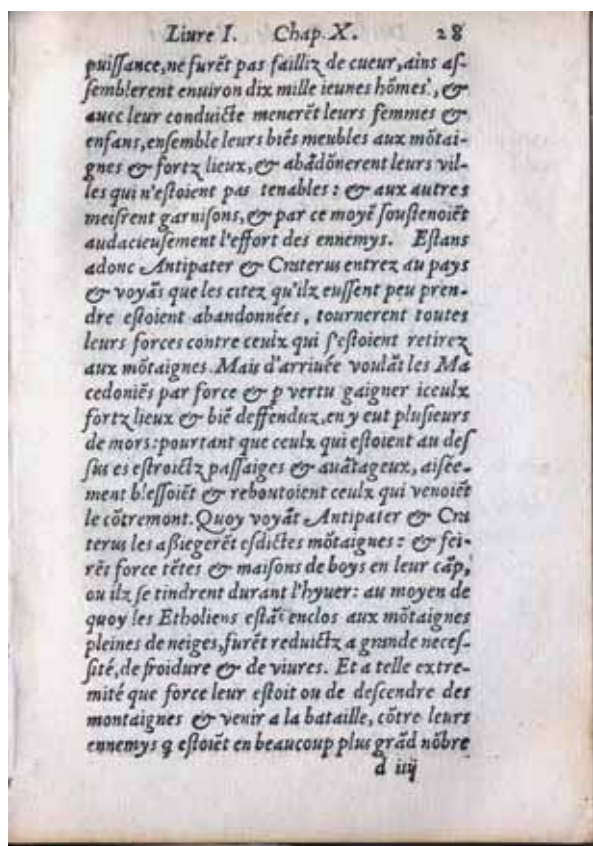 Liure I. Chap. X. 28
puiſſance, ne furẽt pas failliz de cueur, ains aſ-
ſemblerent enuiron dix mille ieunes hõmes, &
auec leur conduicte menerẽt leurs femmes &
enfans, enſemble leurs biẽs meubles aux mõtai-
gnes & fortz lieux, & abãdõnerent leurs vil-
les qui n'eſtoient pas tenables : & aux autres
meiſrent garniſons, & par ce moyẽ ſouſtenoiẽt
audacieuſement l'effort des ennemys. Eſtans
adonc Antipater & Craterus entrez au pays
& voyãs que les citez qu'ilz euſſent peu pren-
dre eſtoient abandonnées, tournerent toutes
leurs forces contre ceulx qui ſ'eſtoient retirez
aux mõtaignes. Mais d'arriuée voulãt les Ma
cedoniẽs par force & p vertu gaigner iceulx
fortz lieux & biẽ deffenduz, en y eut pluſieurs
de mors : pourtant que ceulx qui eſtoient au deſ
ſus es eſtroictz paſſaiges & auãtageux, aiſée-
ment bleſſoiẽt & reboutoient ceulx qui venoiẽt
le cõtremont. Quoy voyãt Antipater & Cra
terus les aßiegerẽt eſdictes mõtaignes : & fei-
rẽt force tẽtes & maiſons de boys en leur cãp,
ou ilz ſe tindrent durant l'hyuer : au moyen de
quoy les Etholiens eſtãs enclos aux mõtaignes
pleines de neiges, furẽt reduictz a grande neceſ-
ſité, de froidure & de viures. Et a telle extre-
mité que force leur eſtoit ou de deſcendre des
montaignes & venir a la bataille, cõtre leurs
ennemys q eſtoiẽt en beaucoup plus grãd nõbre
d iiij